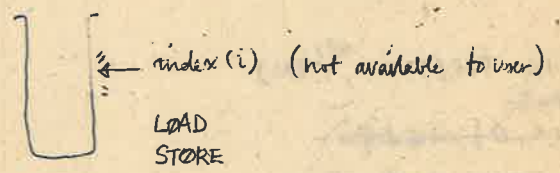 index (i) (not available to user)
LØAD
STØRE